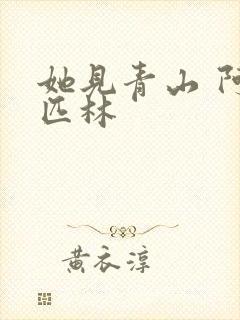 她见青山 阿
匹林
黄衣淳